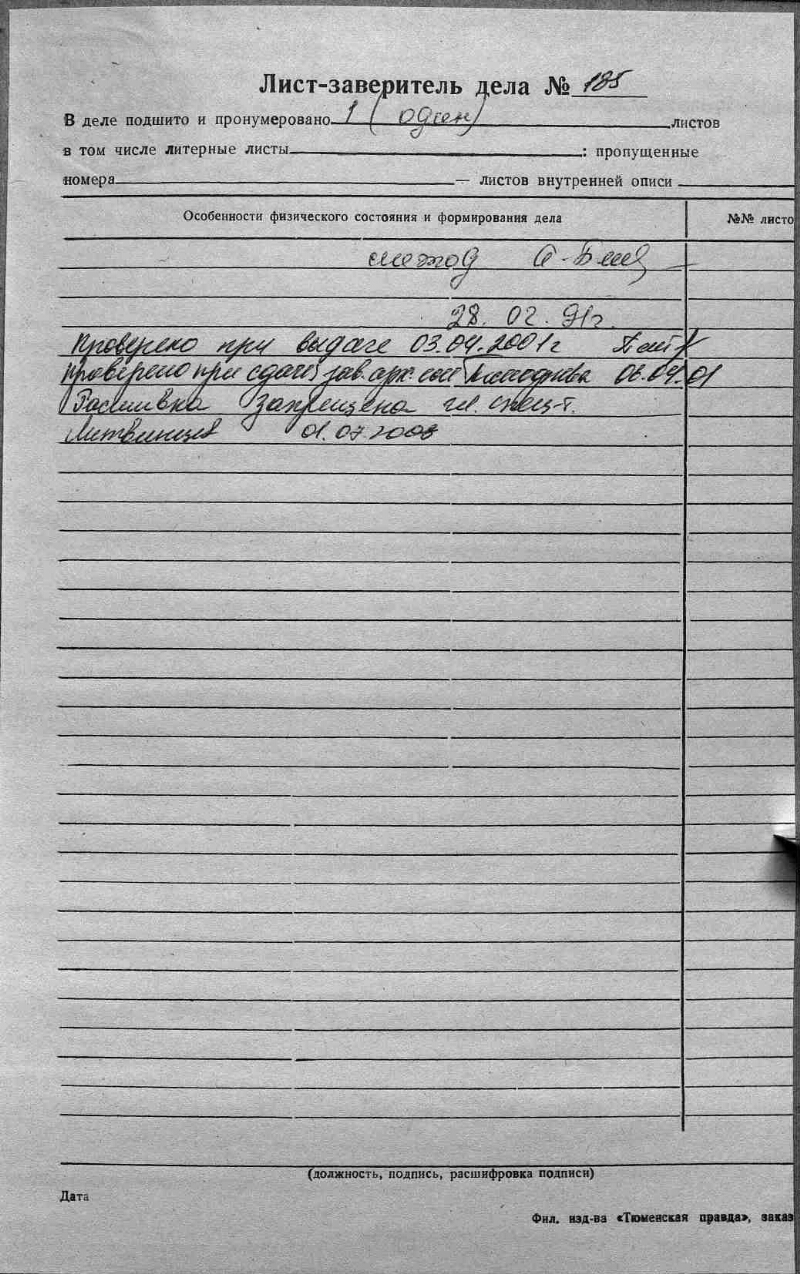 Лист-заверитель дела № 185
В деле подшито и пронумеровано 1 (один) листов
в том числе литерные листы : пропущенные
номера — листов внутренней описи
Особенности физического состояния и формирования дела №№ листо
28. 02. 91г.
Проверено при выдаче 03.04.2001г
Проверено при сдаче зав. арх. 06.04.01
Расшивка запрещена гл. спец-т.
Литвинцев 01.07.2008
(должность, подпись, расшифровка подписи)
Дата
Фил. изд-ва «Тюменская правда», заказ